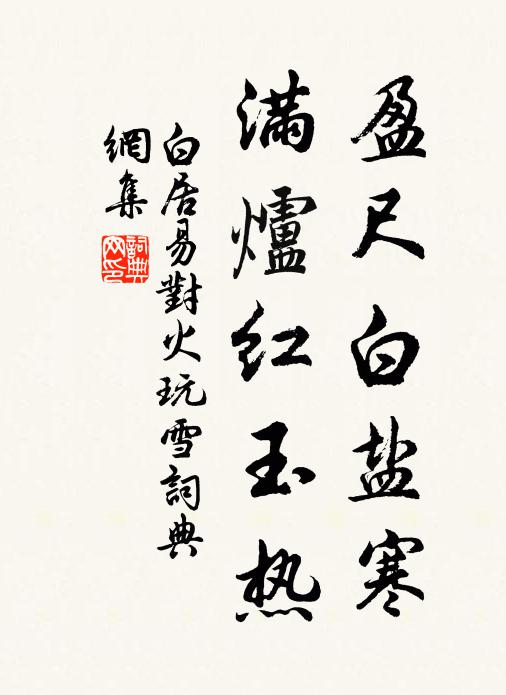 盈尺白盐寒
满爐红玉热
白居易對火玩雪詞典
網集
詞典网印